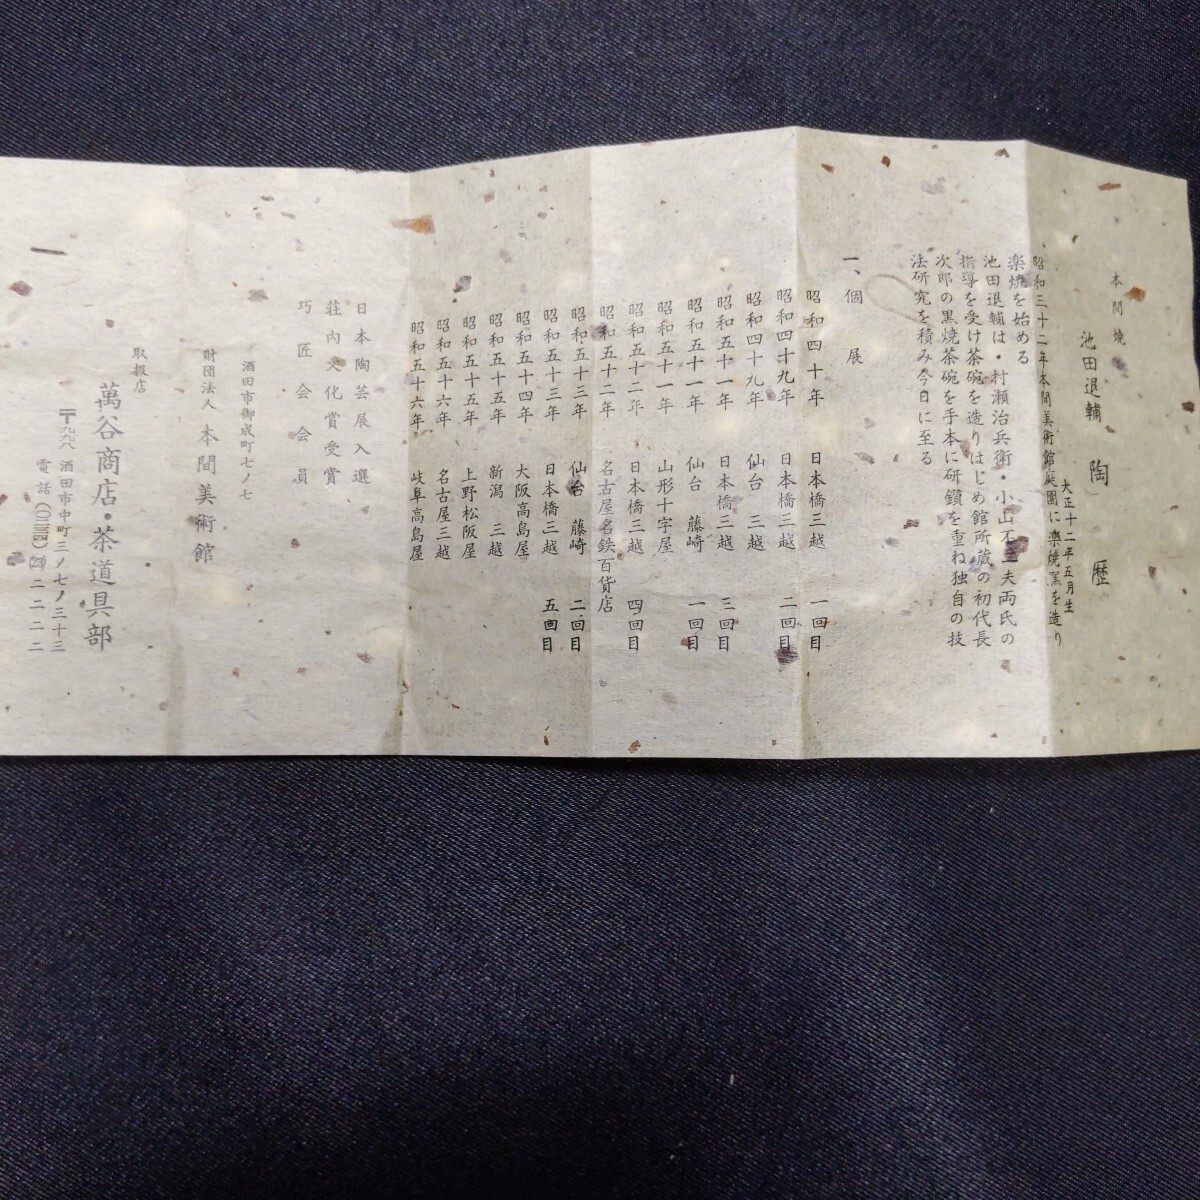 本間焼
池田退輔 陶歴
大正十二年五月生
昭和三十二年本間美術館庭園に楽焼窯を造り
楽焼を始める
池田退輔は・村瀬治兵衛・小山不二夫両氏の
指導を受け茶碗を造りはじめ館所蔵の初代長
次郎の黒焼茶碗を手本に研鑽を重ね独自の技
法研究を積み今日に至る
一、個展
昭和四十年 日本橋三越 一回目
昭和四十九年 日本橋三越 二回目
昭和四十九年 仙台 三越
昭和五十一年 日本橋三越 三回目
昭和五十一年 仙台 藤崎 一回目
昭和五十一年 山形十字屋
昭和五十二年 日本橋三越 四回目
昭和五十二年 名古屋名鉄百貨店
昭和五十三年 仙台 藤崎 二回目
昭和五十三年 日本橋三越 五回目
昭和五十四年 大阪高島屋
昭和五十五年 新潟 三越
昭和五十五年 上野松阪屋
昭和五十六年 名古屋三越
昭和五十六年 岐阜高島屋
日本陶芸展入選
荘内文化賞受賞
巧匠会会員
酒田市御成町七ノ七
財団法人 本間美術館
取扱店
萬谷商店・茶道具部
〒九九八 酒田市中町三ノ七ノ三十三
電話(〇二三四)㉒二二二二